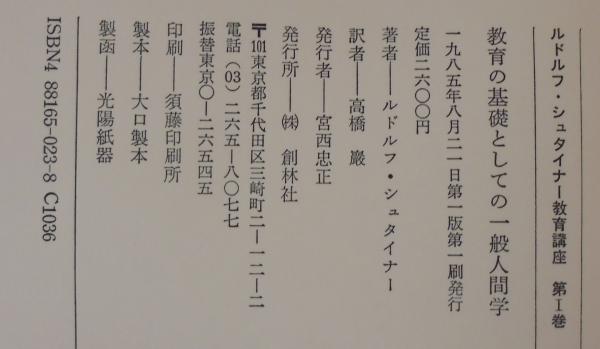 ルドルフ・シュタイナー教育講座 第Ⅰ巻
教育の基礎としての一般人間学
一九八五年八月二一日第一版第一刷発行
定価二六〇〇円
著者──ルドルフ・シュタイナー
訳者──高橋 巖
発行者──宮西忠正
発行所──㈱ 創林社
〒101東京都千代田区三崎町二─一二─二
電話(03)二六五─八〇七七
振替東京〇─二六五四五
印刷──須藤印刷所
製本──大口製本
製函──光陽紙器
ISBN4 88165-023-8 C1036